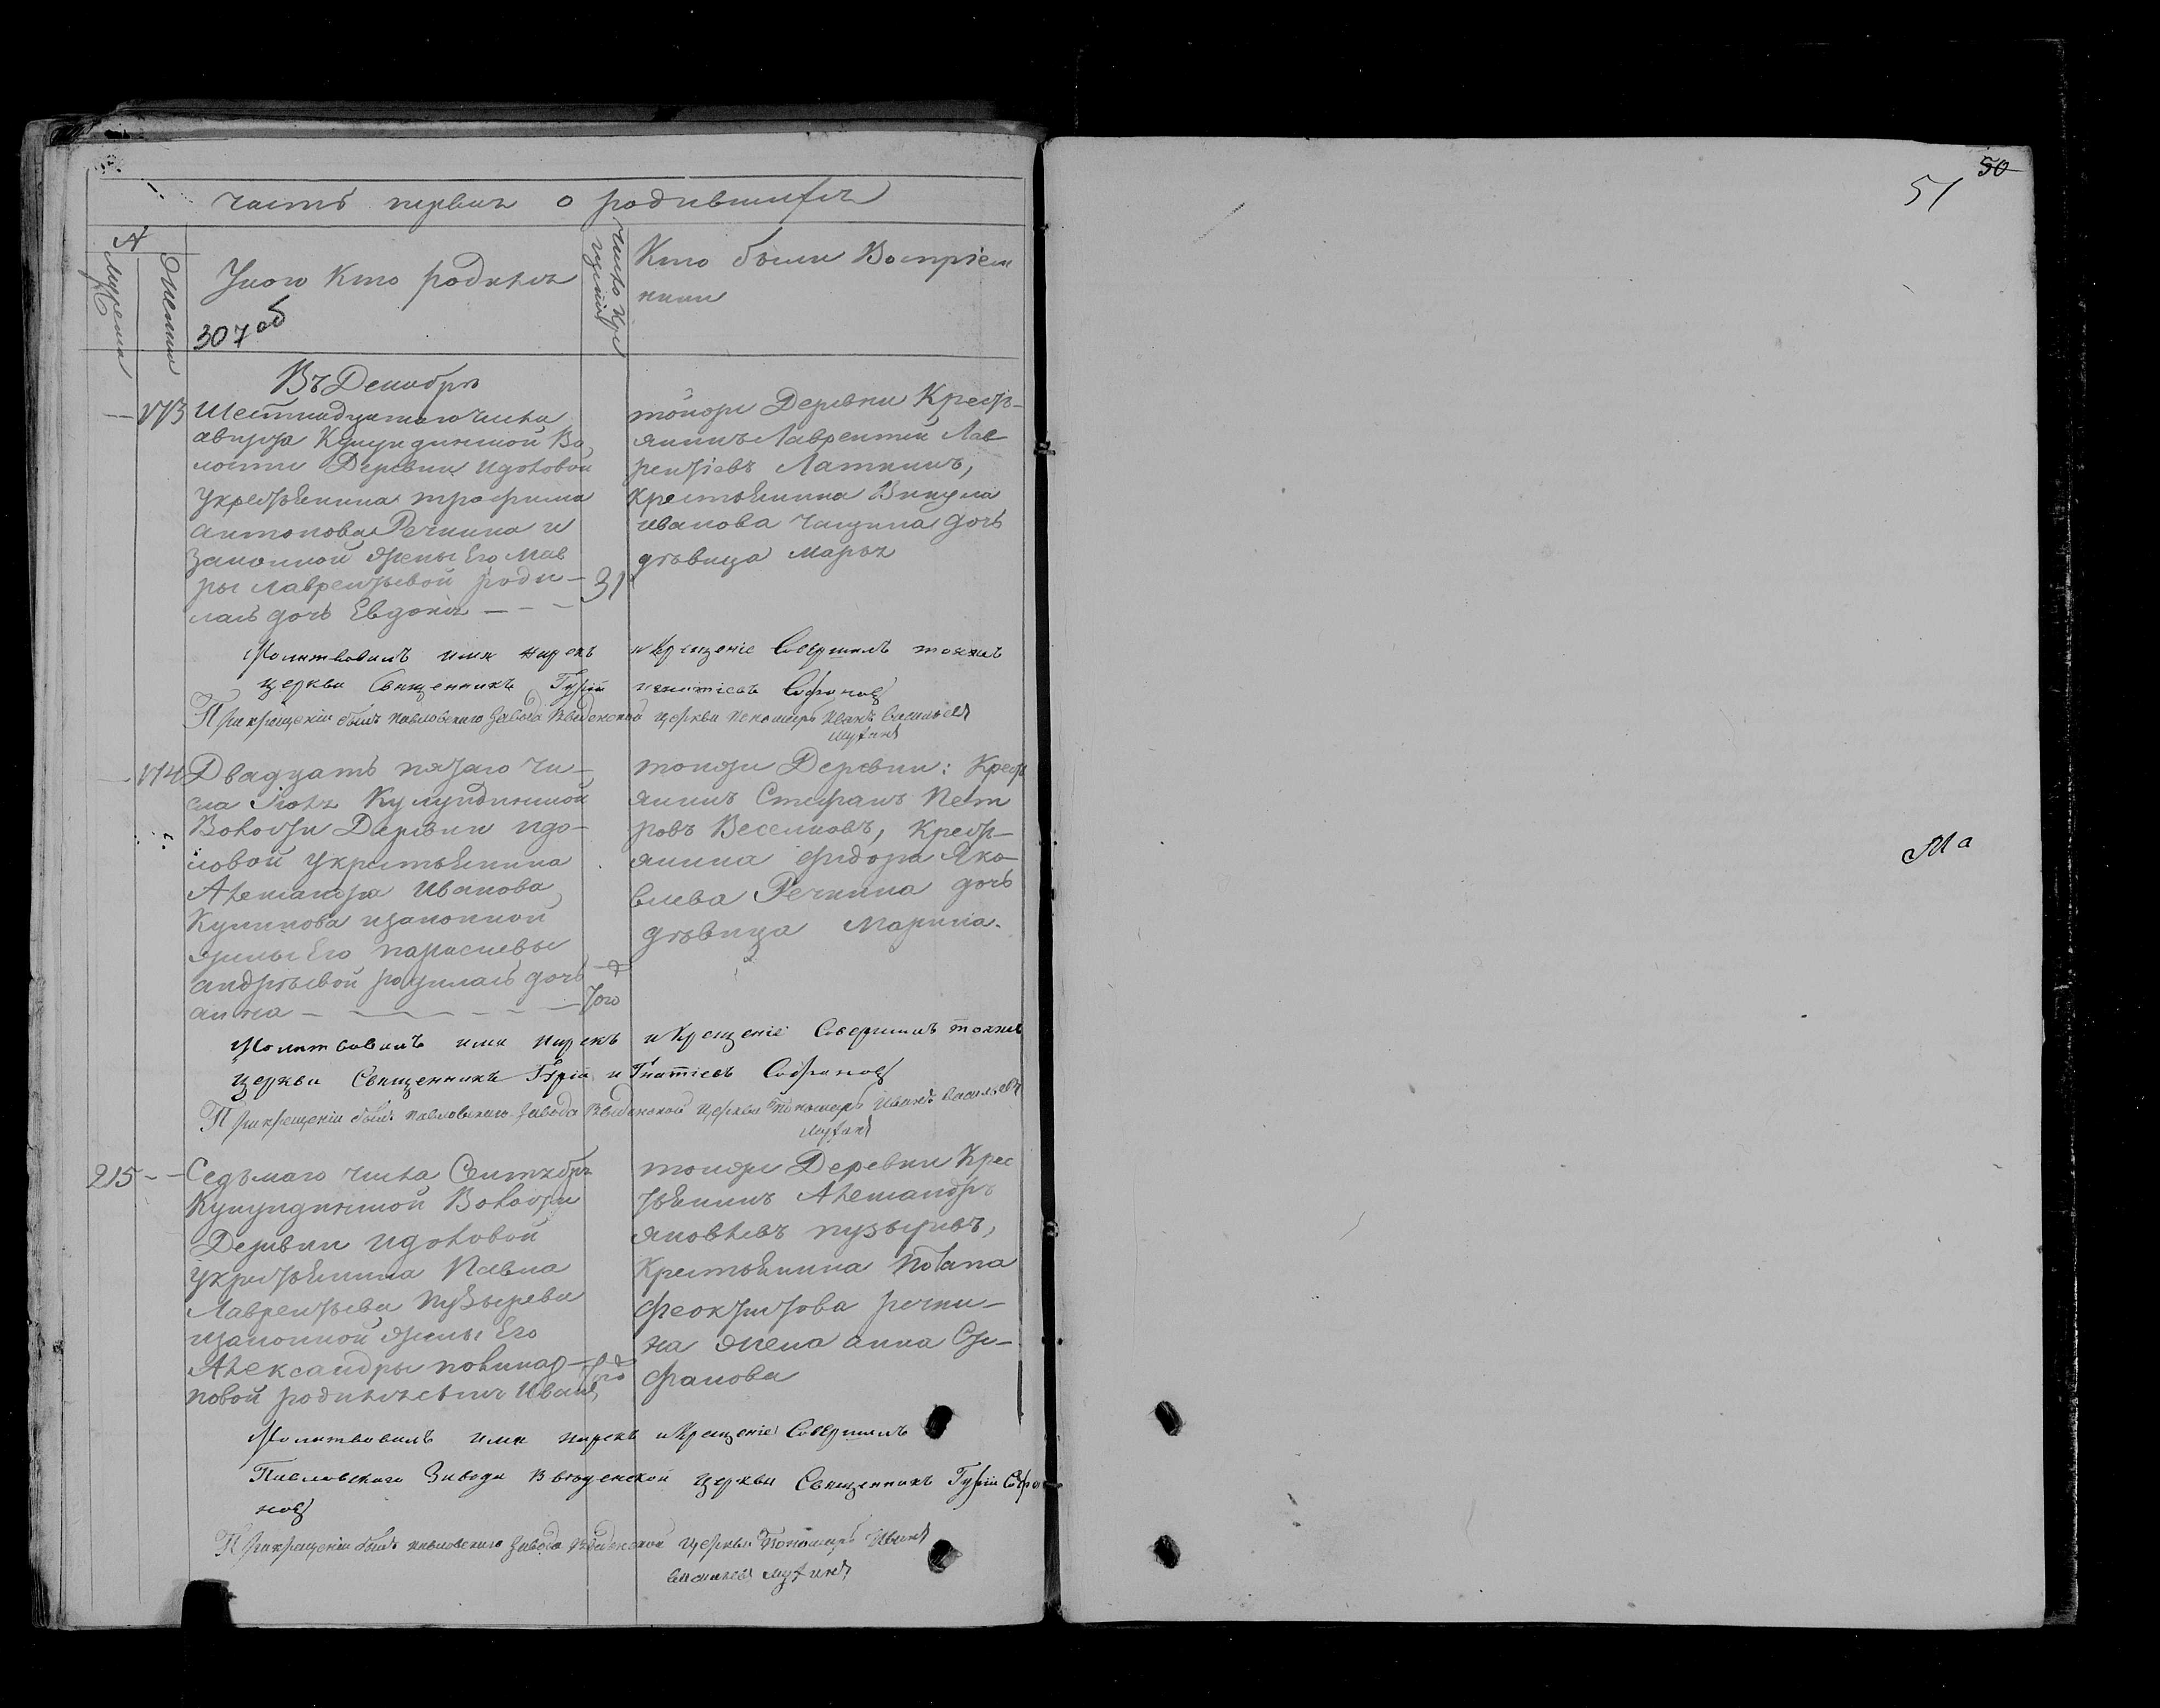 часть первая о родившихся
№
Мужеска
Женска
У кого кто родился
307 об
число кре
щенія
Кто были Воспріем
ники
Въ Декабрѣ
— 173 Шестнадцатаго числа
августа Кулундинской Во
лости Деревни Идоловой
у крестьянина трофима
антонова Речкина и
законной жены Его Мав
ры лаврентьевой роди—
лась дочь Евдокія — — —
31
тойже Деревни Крест—
янинъ Лаврентий Лав
рентіевъ Латкинъ,
крестьянина Викула
иванова Чащина дочь
дѣвица Марья
Молитвовалъ имя нарекъ и Крещеніе Совершилъ тояже
церкви Священникъ Гурій игнатіевъ Софоновъ
При крещеніи былъ павловскаго завода Введенской церкви пономарь Иванъ Васильевъ
Мухинъ
— 174 Двадцать пятаго чи—
сла Іюля Кулундинской
Волости Деревни идо—
ловой у крестьянина
Александра Иванова
Куликова и законной
жены Его парасковьи
андрѣевой родилась дочь
анна — — — — — — —
того
тойже Деревни: Крест
янинъ Стефанъ Пет
ровъ Веселковъ, Крест—
янина Фидора Яко
влева Речкина дочь
дѣвица Марина.
Молитвовалъ имя нарекъ и Крещеніе Совершилъ тояже
церкви Священникъ Гурій игнатіевъ Софоновъ
При крещеніи былъ павловскаго завода Введенской церкви пономарь Иванъ Васильевъ
Мухинъ
215 — — Седьмаго числа Сентября
Кулундинской Волости
Деревни Идоловой
у крестьянина Павла
Лаврентьева Пузырева
и законной жены Его
Александры поликар—
повой родился сынъ Иванъ,
того
тойже Деревни Крес
тьянинъ Александръ
яковлевъ пузыревъ,
Крестьянина Потапа
Феоктистова речки—
на жена анна Сте—
фанова
Молитвовалъ имя нарекъ и Крещеніе Совершилъ
Павловскаго Завода Введенской церкви Священникъ Гурій Софо
новъ
При крещеніи былъ павловскаго завода Введенской церкви Пономарь Иванъ
васильевъ мухинъ
50
51
Ма